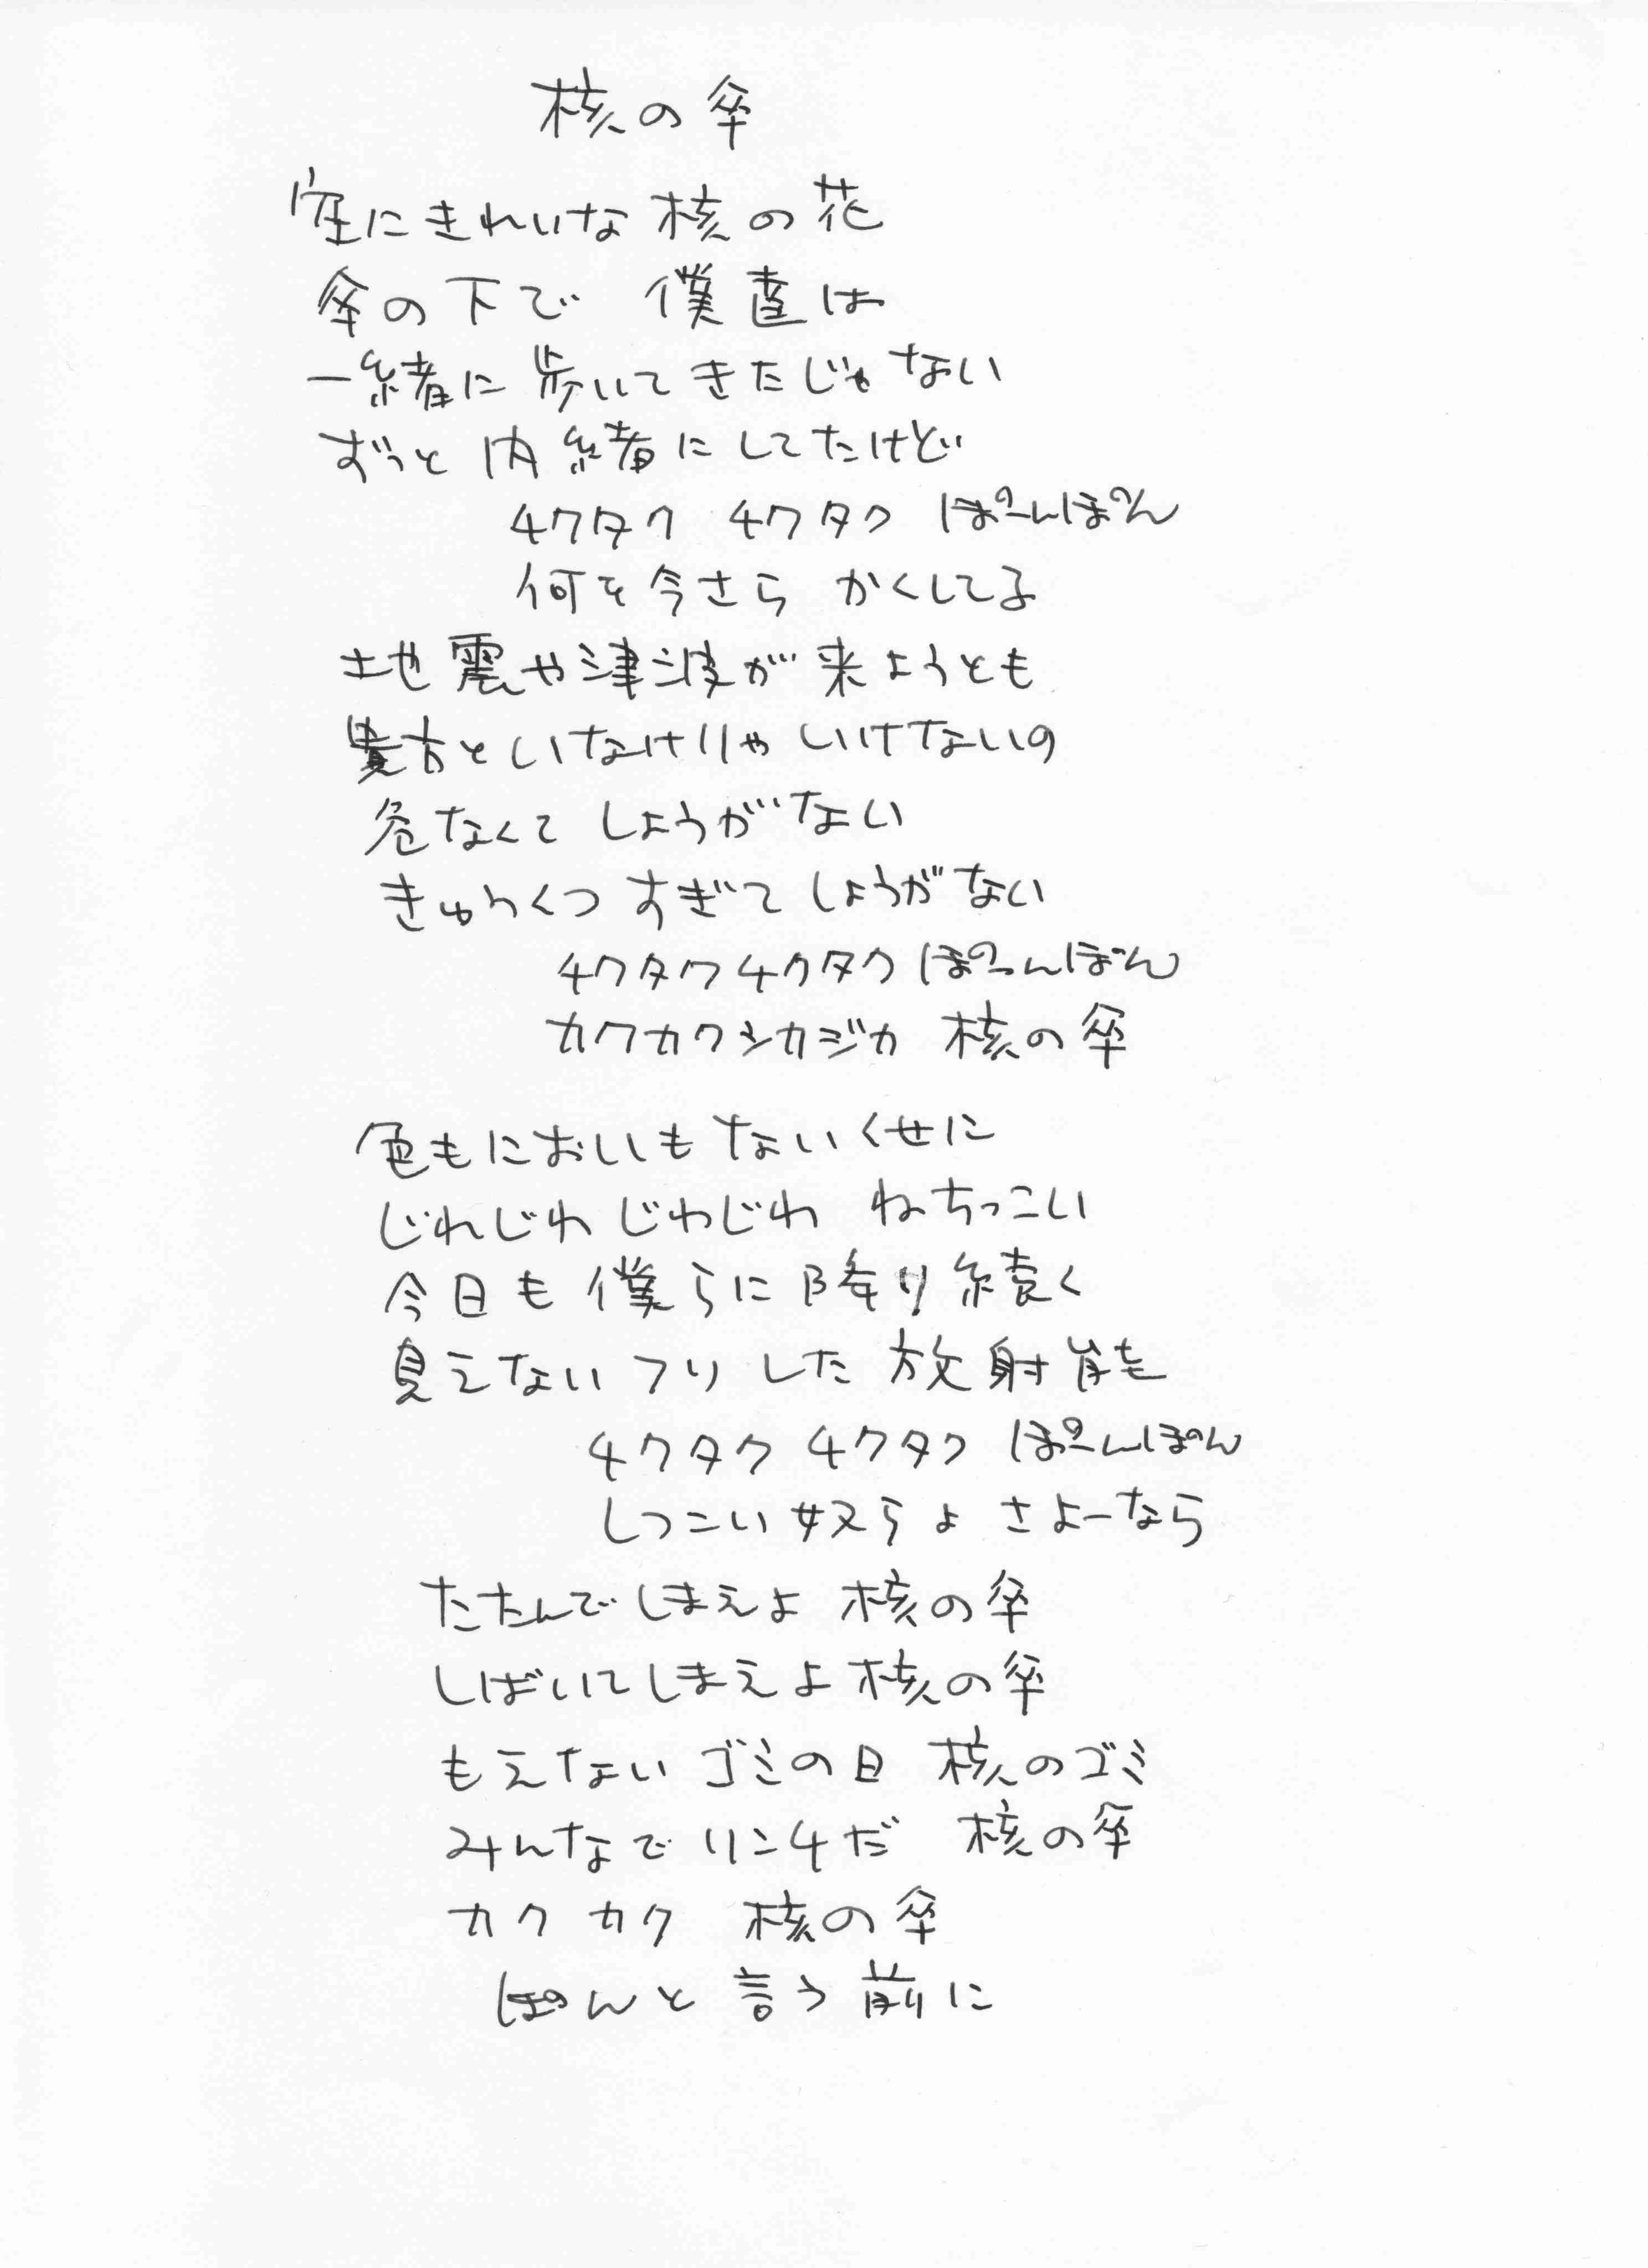 核の傘
空にきれいな核の花
傘の下で 僕達は
一緒に歩いてきたじゃない
ずっと内緒にしてたけど
チクタク チクタク ぽーんぽん
何を今さら かくしてる
地震や津波が来ようとも
貴方といなけりゃ いけないの
危なくて しょうがない
きゅうくつ すぎて しょうがない
チクタクチクタク ぽーんぽん
カクカクシカジカ 核の傘
色もにおいも ないくせに
じれじわ じわじわ ねちっこい
今日も僕らに降り続く
見えないフリした 放射能も
チクタク チクタク ぽーんぽん
しつこい奴らよ さよーなら
たたんでしまえよ 核の傘
しばいてしまえよ 核の傘
もえないゴミの日 核のゴミ
みんなでリンチだ 核の傘
カク カク 核の傘
ぽんと言う前に